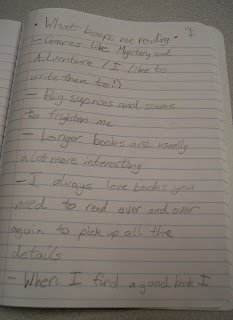 • What keeps me reading •
- Genres like Mystery and
Adventure (I like to
write them to!)
- Big suprises and scares
to frighten me
- Longer books are usually
a lot more interesting
- I always love books you
need to read over and over
again to pick up all the
details
- When I find a good book I